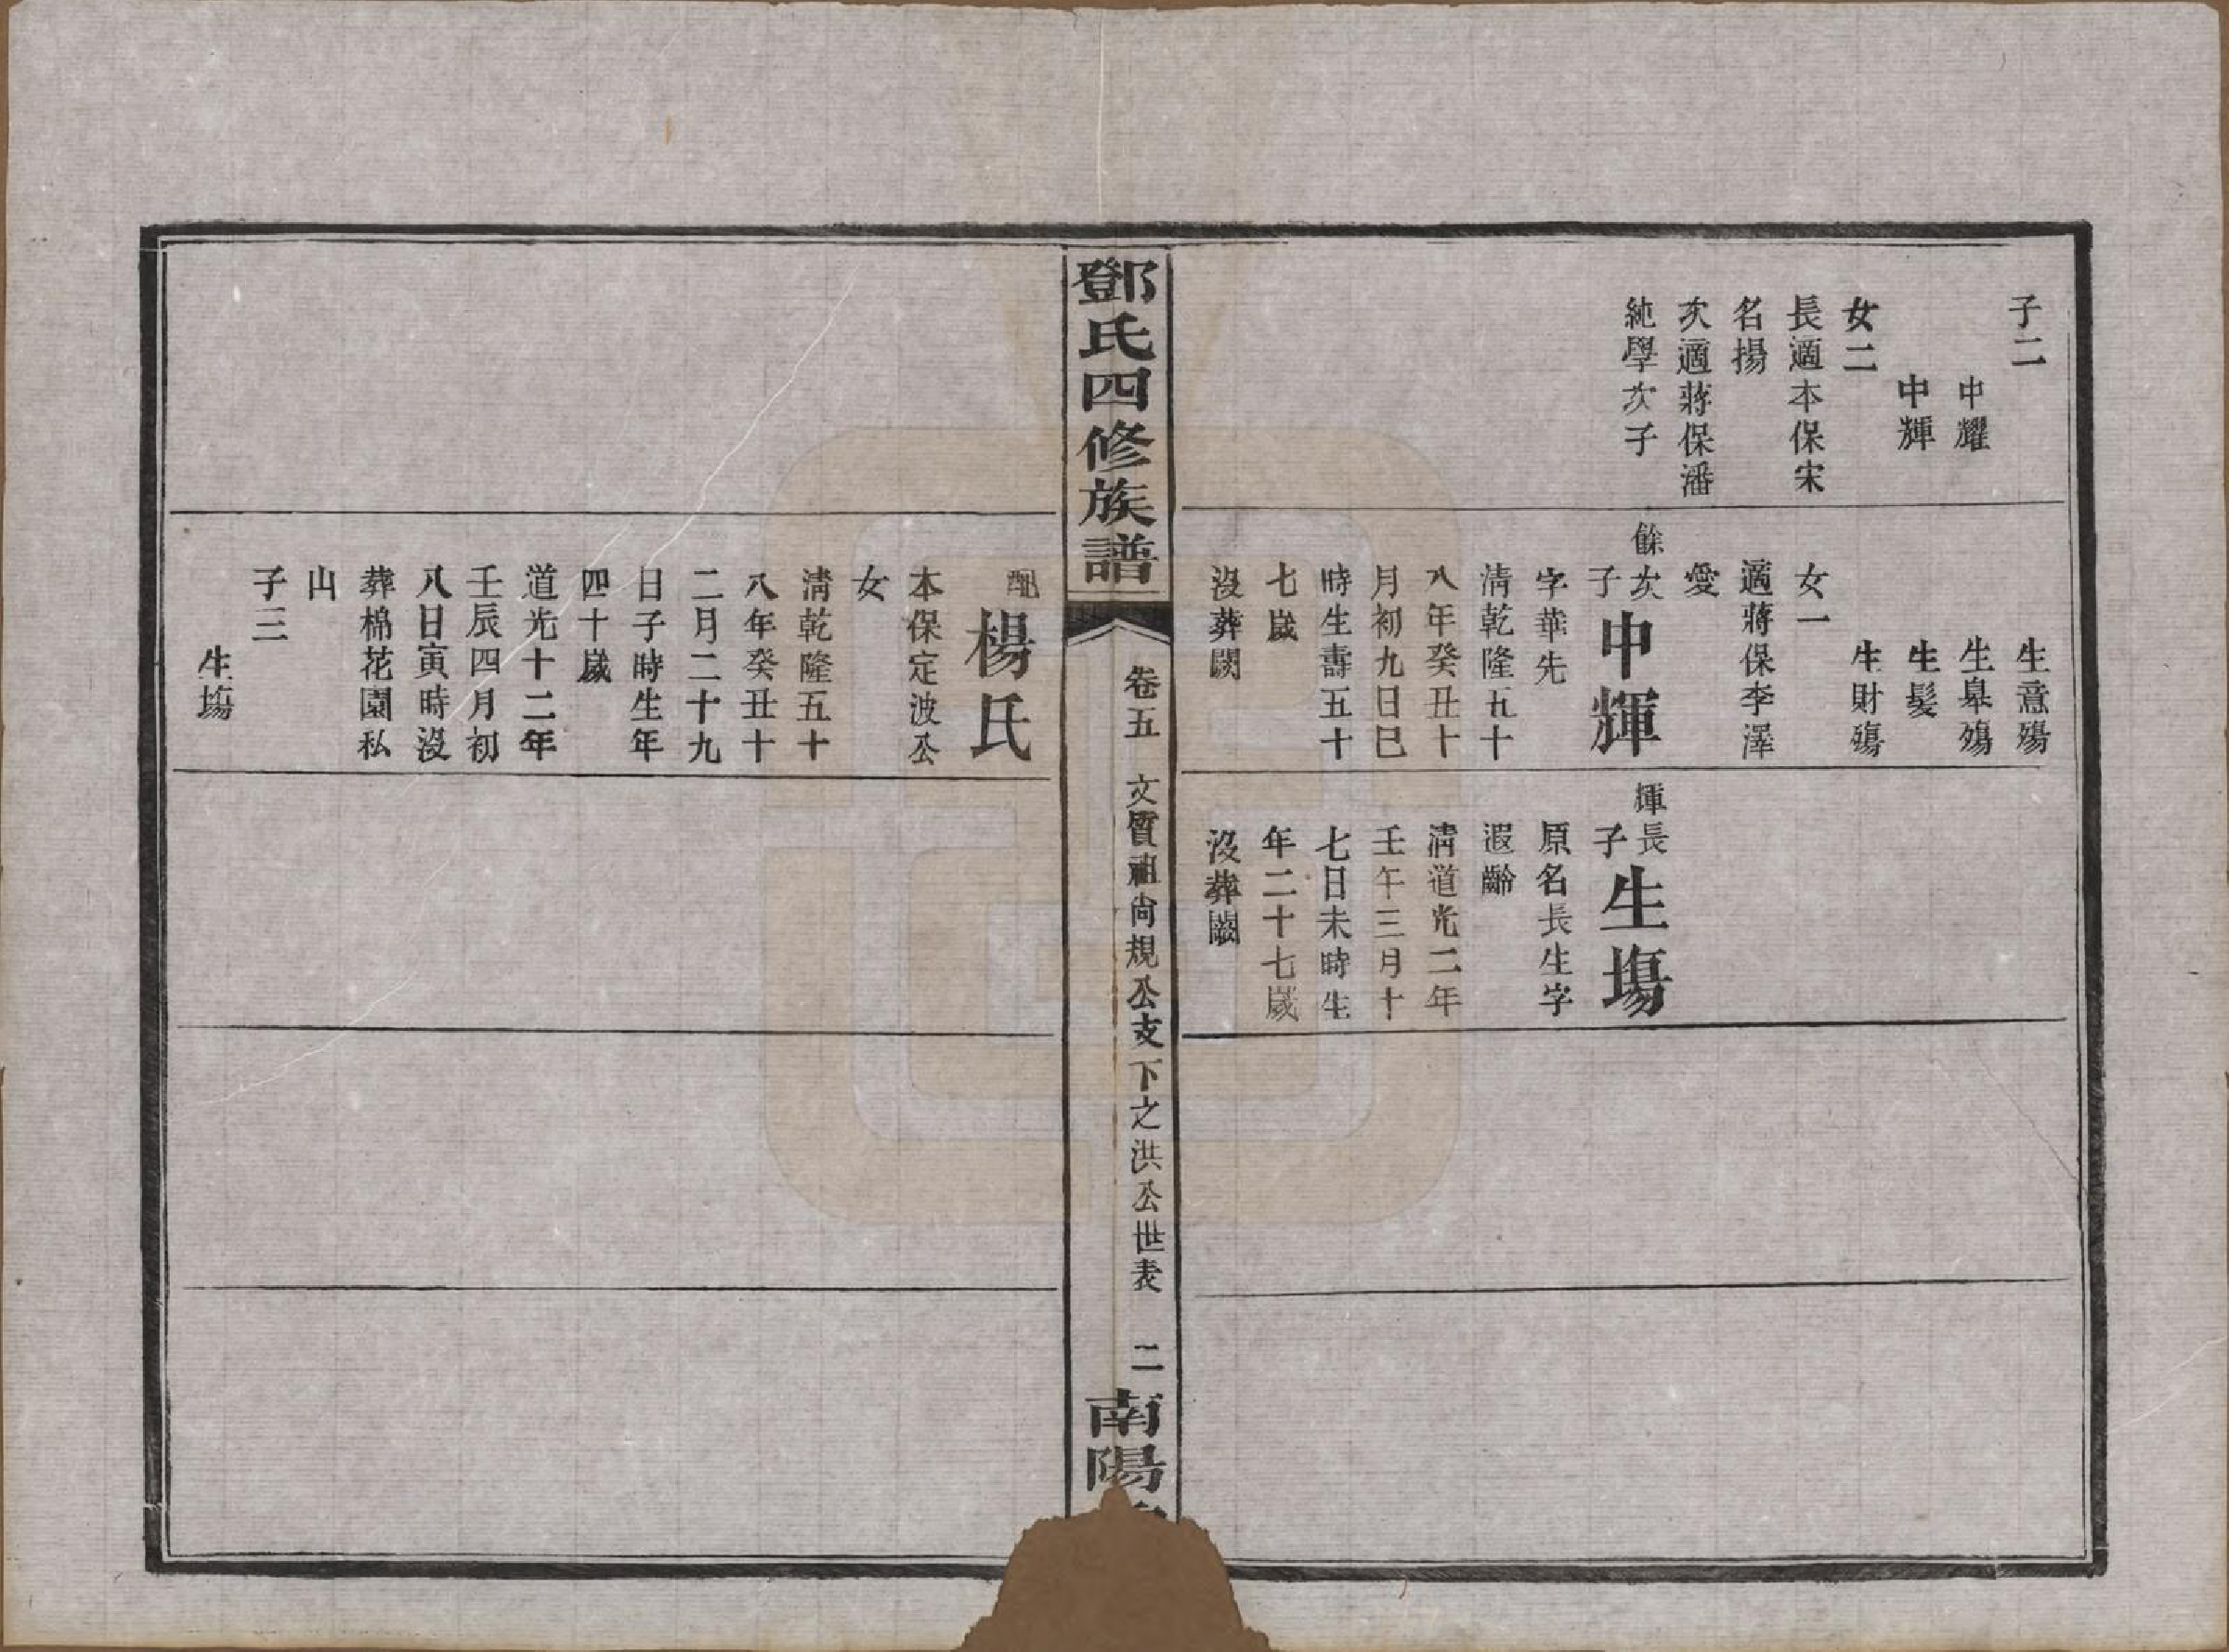 子二
中耀
中輝
女二
長適本保宋
名揚
次適蔣保潘
純學次子
生意殤
生皐殤
生髮
生財殤
女一
適蔣保李澤
愛
餘次
子
中輝
字華先
清乾隆五十
八年癸丑十
月初九日巳
時生壽五十
七歲
沒葬闕
輝長
子
生塲
原名長生字
遐齡
清道光二年
壬午三月十
七日未時生
年二十七歲
沒葬闕
鄧氏四修族譜
卷五
文質祖尙規公支下之洪公世表
二
南陽
配
楊氏
本保定波公
女
清乾隆五十
八年癸丑十
二月二十九
日子時生年
四十歲
道光十二年
壬辰四月初
八日寅時沒
葬棉花園私
山
子三
生塲